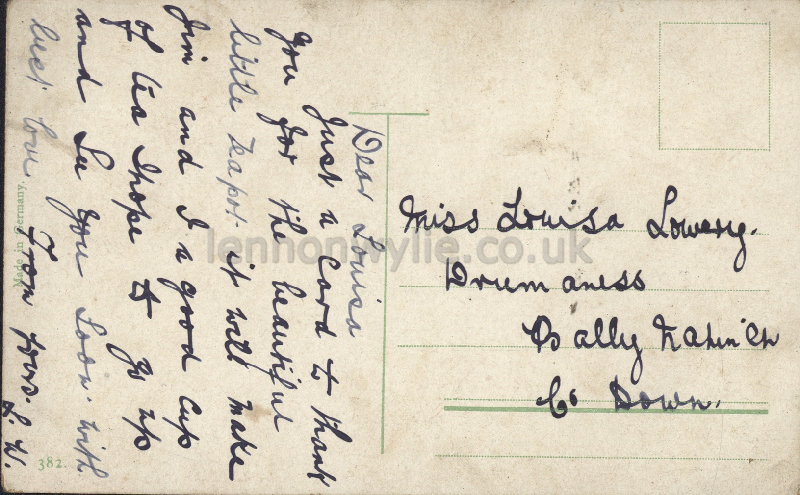 Dear Louisa
Just a Card to thank
you for the beautiful
little Teapot it will make
Jim and I a good Cup
of tea I hope to go up
and See you Soon with
best love from yours. L. W.
Miss Louisa Lowery.
Drumaness
Ballynahinch
Co Down.
Made in Germany.
382.
lennonwylie.co.uk